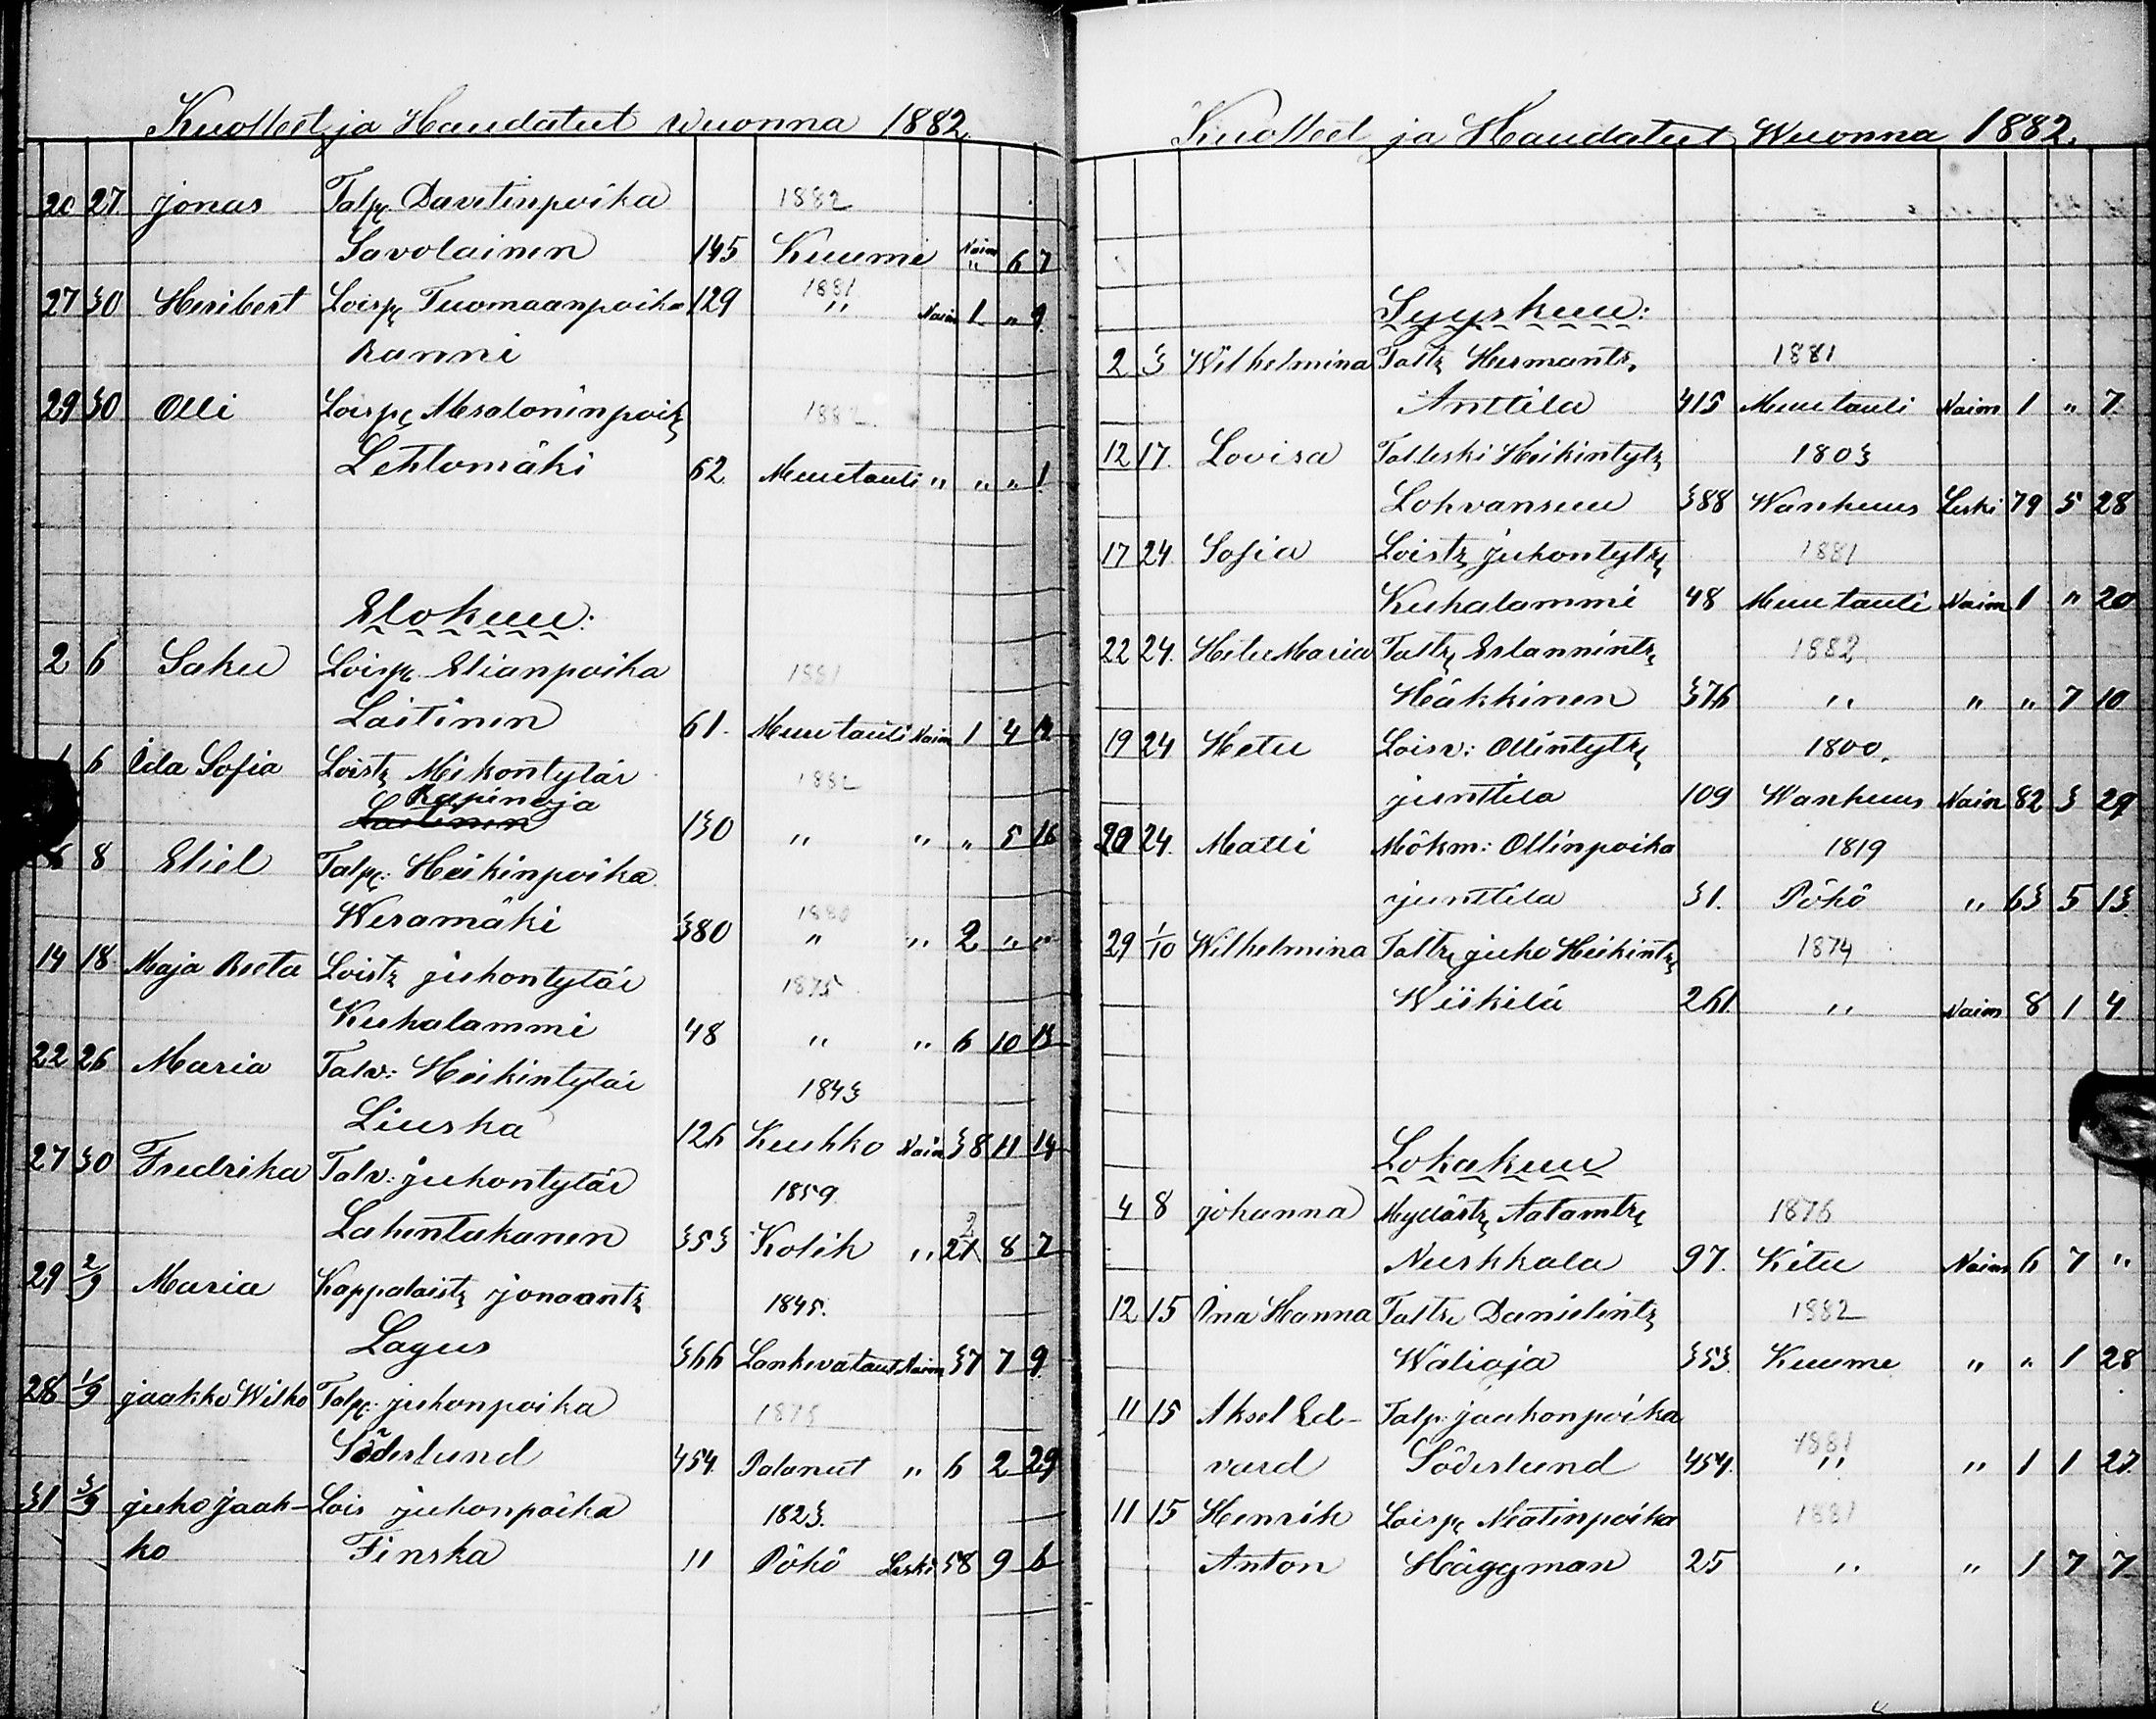 Kuolleet ja Haudatut wuonna 1882.
20 27. Jonas Talp. Davitinpoika 1882
Savolainen 145 Kuume Naim " 6 7
27 30 Heribert Loisp. Tuomaanpoika 129 1881 " Naim 1 " 9
Ranni
29 30 Olli Loisp. 1882
Lehtomäki 62. Muu tauti " " " 1
Elokuu:
2 6 Saku Loisp. Elianpoika 1881
Laitinen 61. Muu tauti Naim 1 4 12
6 Ida Sofia Loistr. Meikontytär 1882
Rapinoja
Laitinen 130 " " " 5 16
8 Eliel Talp: Heikinpoika
Weramäki 380 1880 " " 2 " "
14 18 Maja Reeta Loistr. juhontytär 1875
Kuhalammi 48 " " 6 10 13
22 26 Maria Talv: Heikintytär 1843
Liuska 126 Kuhko Naim 38 11 14
27 30 Fredrika Talv: juhontytär 1859.
Lahentakanen 353 Kolik " 22 8 7
29 2/9 Maria Kappalaistr. jonaantr. 1845.
Lagus 366 Lankevataut Naim 37 7 9.
28 1/9 jaakko Wilho Talp: juhonpoika 1876
Söderlund 454. Palanut " 6 2 29
31 3/9 juho jaak-
ko Lois juhonpoika 1823.
Finska 11 Pöhö Leski 58 9 6
Kuolleet ja Haudatut Wuonna 1882.
Syyskuu:
2 3 Wilhelmina Taltr. Hermantr. 1881
Anttila 415 Muu tauti Naim 1 " 7.
12 17. Lovisa Talleski Heikintytr. 1803
Lohvansuu 388 Wanhuus Leski 79 5 28
17 24. Sofia Loistr. juhontytr. 1881
Kuhalammi 48 Muu tauti Naim 1 " 20
22 24. Hetu Maria Taltr. Erlannintr. 1882
Häkkinen 376 " " " 7 10
19 24 Hetu Loisv: Ollintytr. 1800.
junttila 109 Wanhuus Naim 82 3 29
20 24. Matti Mökm: Ollinpoika 1819
junttila 31. Pöhö " 63 5 13.
29 1/10 Wilhelmina Taltr. juho Heikintr. 1874
Wiikilä 261. " Naim 8 1 4
Lokakuu
4 8 johanna Mylärtr. Aatamtr. 1876
Nurkkala 97. Kitu Naim 6 7 "
12 15 Ina Hanna Taltr. Danielintr. 1882
Wälioja 353. Kuume " " 1 28
11 15 Aksel Ed- Talp. jaakonpoika
vard Söderlund 454. 1881 " " 1 1 27.
11 15 Henrik Loisp. Matinpoika 1881
Anton Häggman 25 " " 1 7 7